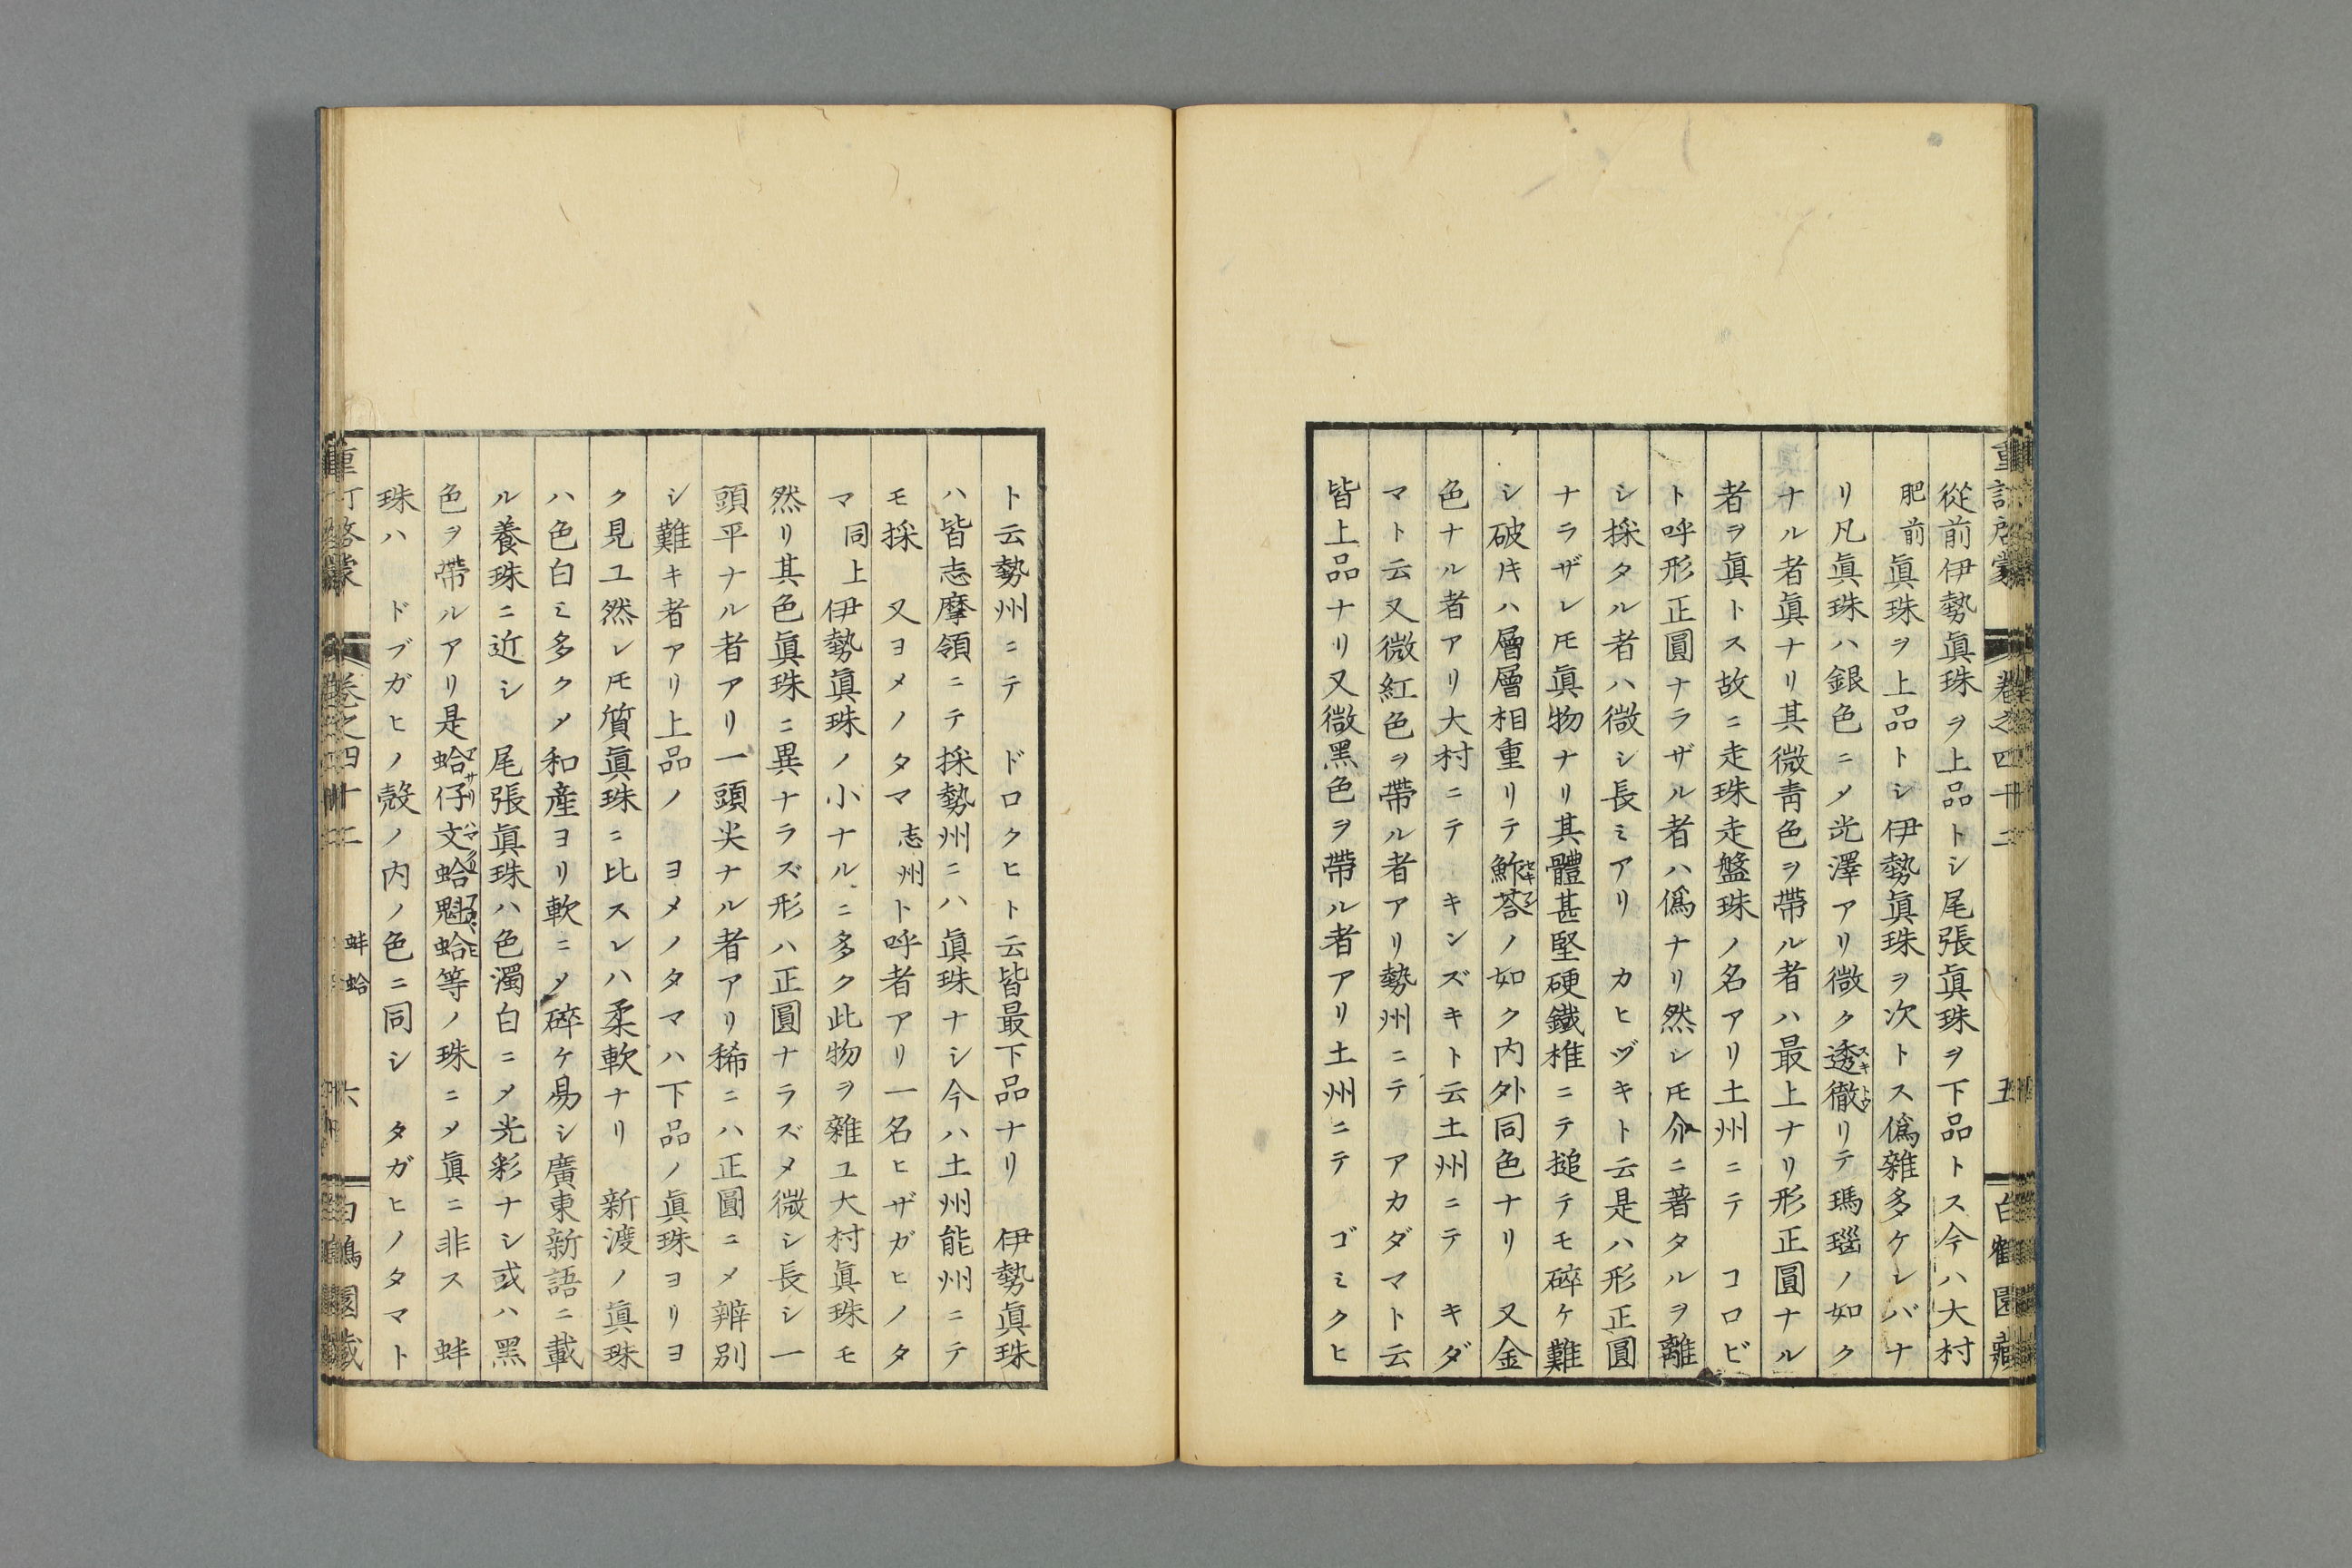 重訂啓蒙 卷之四十二 五 白鶴園藏
從前伊勢眞珠ヲ上品トシ尾張眞珠ヲ下品トス今ハ大村
肥前眞珠ヲ上品トシ伊勢眞珠ヲ次トス僞雜多ケレバナ
リ凡眞珠ハ銀色ニ〆光澤アリ微ク透徹リテ瑪瑙ノ如ク
ナル者眞ナリ其微靑色ヲ帶ル者ハ最上ナリ形正圓ナル
者ヲ眞トス故ニ走珠走盤珠ノ名アリ土州ニテ コロビ
ト呼形正圓ナラザル者ハ僞ナリ然レ𪜈介ニ著タルヲ離
シ採タル者ハ微シ長ミアリ カヒヅキト云是ハ形正圓
ナラザレ𪜈眞物ナリ其體甚堅硬鐵椎ニテ搥テモ碎ケ難
シ破𪜈ハ層層相重リテ鮓荅ノ如ク内外同色ナリ 又金
色ナル者アリ大村ニテ キンズキト云土州ニテ キダ
マト云又微紅色ヲ帶ル者アリ勢州ニテ アカダマト云
皆上品ナリ又微黑色ヲ帶ル者アリ土州ニテ ゴミクヒ
ト云勢州ニテ ドロクヒト云皆最下品ナリ 伊勢眞珠
ハ皆志摩領ニテ採勢州ニハ眞珠ナシ今ハ土州能州ニテ
モ採 又ヨメノタマ志州ト呼者アリ一名ヒザガヒノタ
マ同上伊勢眞珠ノ小ナルニ多ク此物ヲ雜ユ大村眞珠モ
然リ其色眞珠ニ異ナラズ形ハ正圓ナラズ〆微シ長シ一
頭平ナル者アリ一頭尖ナル者アリ稀ニハ正圓ニ〆辨別
シ難キ者アリ上品ノ ヨメノタマハ下品ノ眞珠ヨリヨ
ク見ユ然レ𪜈質眞珠ニ比スレハ柔軟ナリ 新渡ノ眞珠
ハ色白ミ多ク〆和產ヨリ軟ニ〆碎ケ易シ廣東新語ニ載
ル養珠ニ近シ 尾張眞珠ハ色濁白ニ〆光彩ナシ或ハ黑
色ヲ帶ルアリ是蛤仔文蛤魁蛤等ノ珠ニ〆眞ニ非ス 蚌
珠ハ ドブガヒノ殻ノ内ノ色ニ同シ タガヒノタマト
重訂啓蒙 卷之四十二 蚌 蛤 六 白鶴園藏